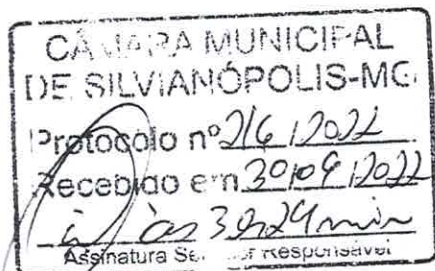 CÂMARA MUNICIPAL
DE SILVIANÓPOLIS-MG
Protocolo nº 216 / 2022
Recebido em 30/09/2022
às
Assinatura Servidor Responsável